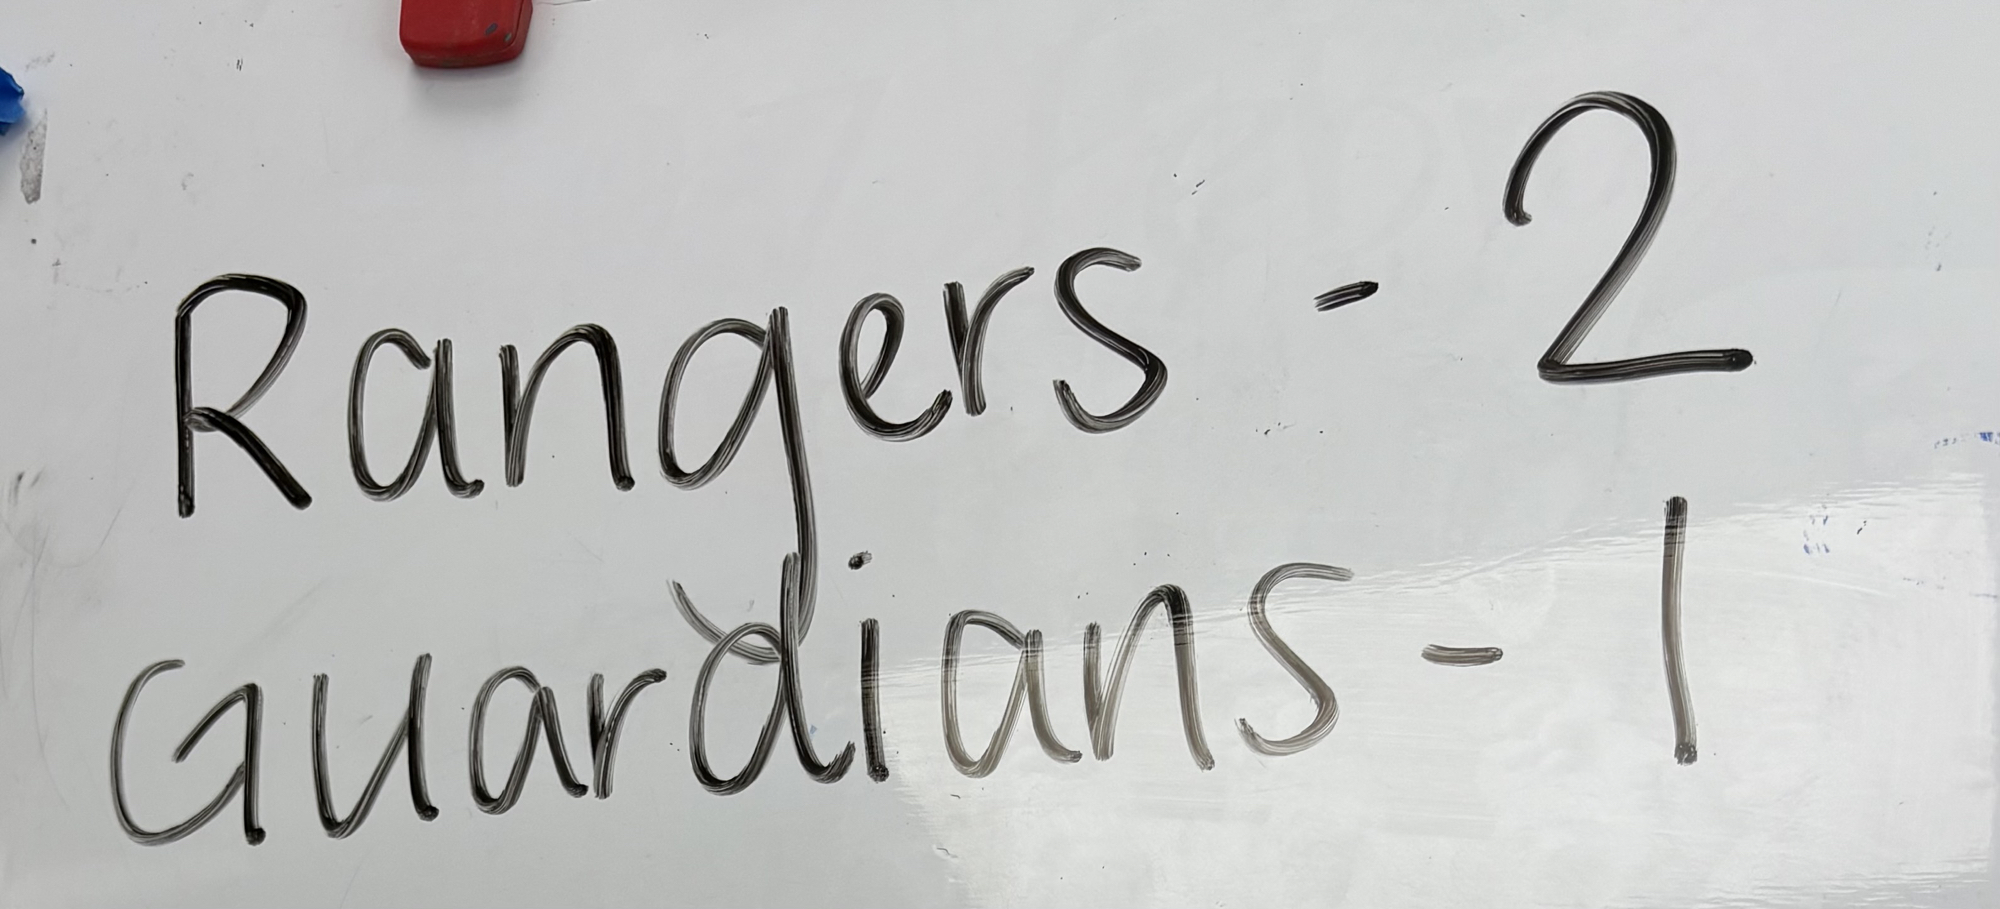 Rangers - 2
Guardians - 1